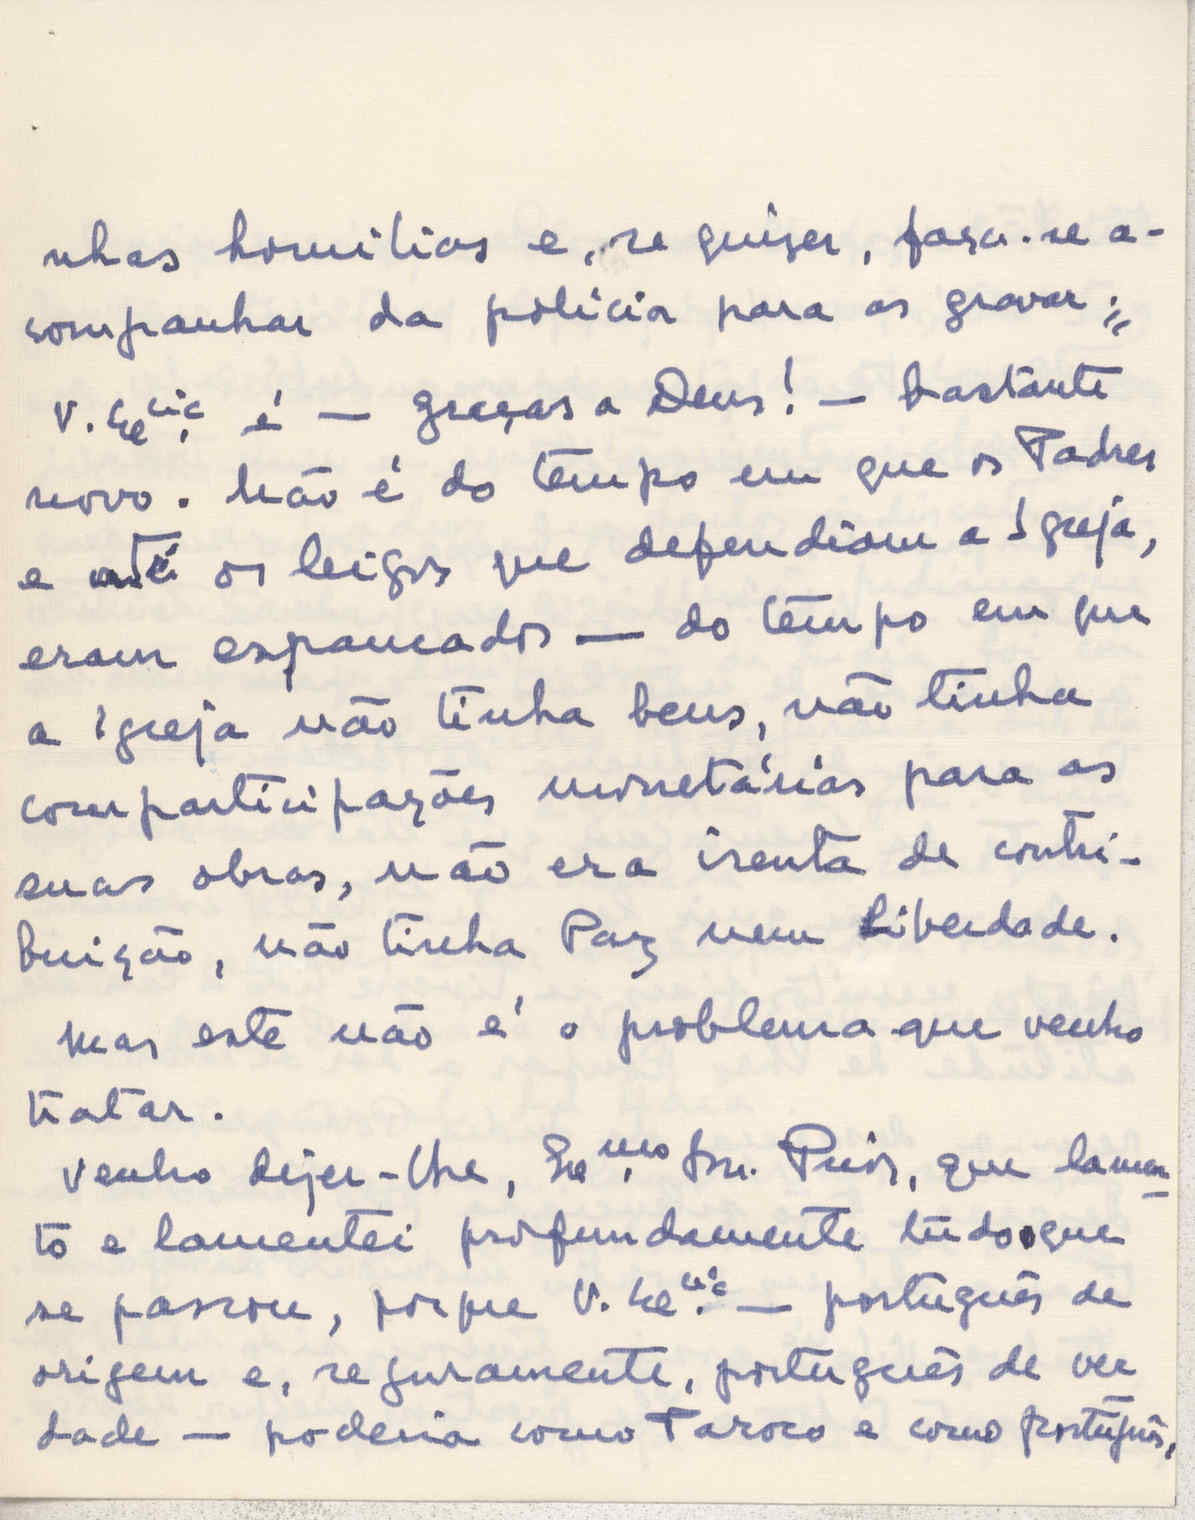 nhas homilias e, se quizer, faça-se a-
companhar da polícia para as gravar;"
V. Excia. é — graças a Deus! — bastante
novo. Não é do tempo em que os Padres
e até os leigos que defendiam a Igreja,
eram espancados — do tempo em que
a Igreja não tinha bens, não tinha
comparticipações monetárias para as
suas obras, não era isenta de contri-
buição, não tinha Paz nem Liberdade.
Mas este não é o problema que venho
tratar.
Venho dizer-lhe, Exmo. Snr. Prior, que lamen-
to e lamentei profundamente tudo o que
se passou, porque V. Excia. — português de
origem e, seguramente, português de ver
dade — poderia como Paroco e como português,